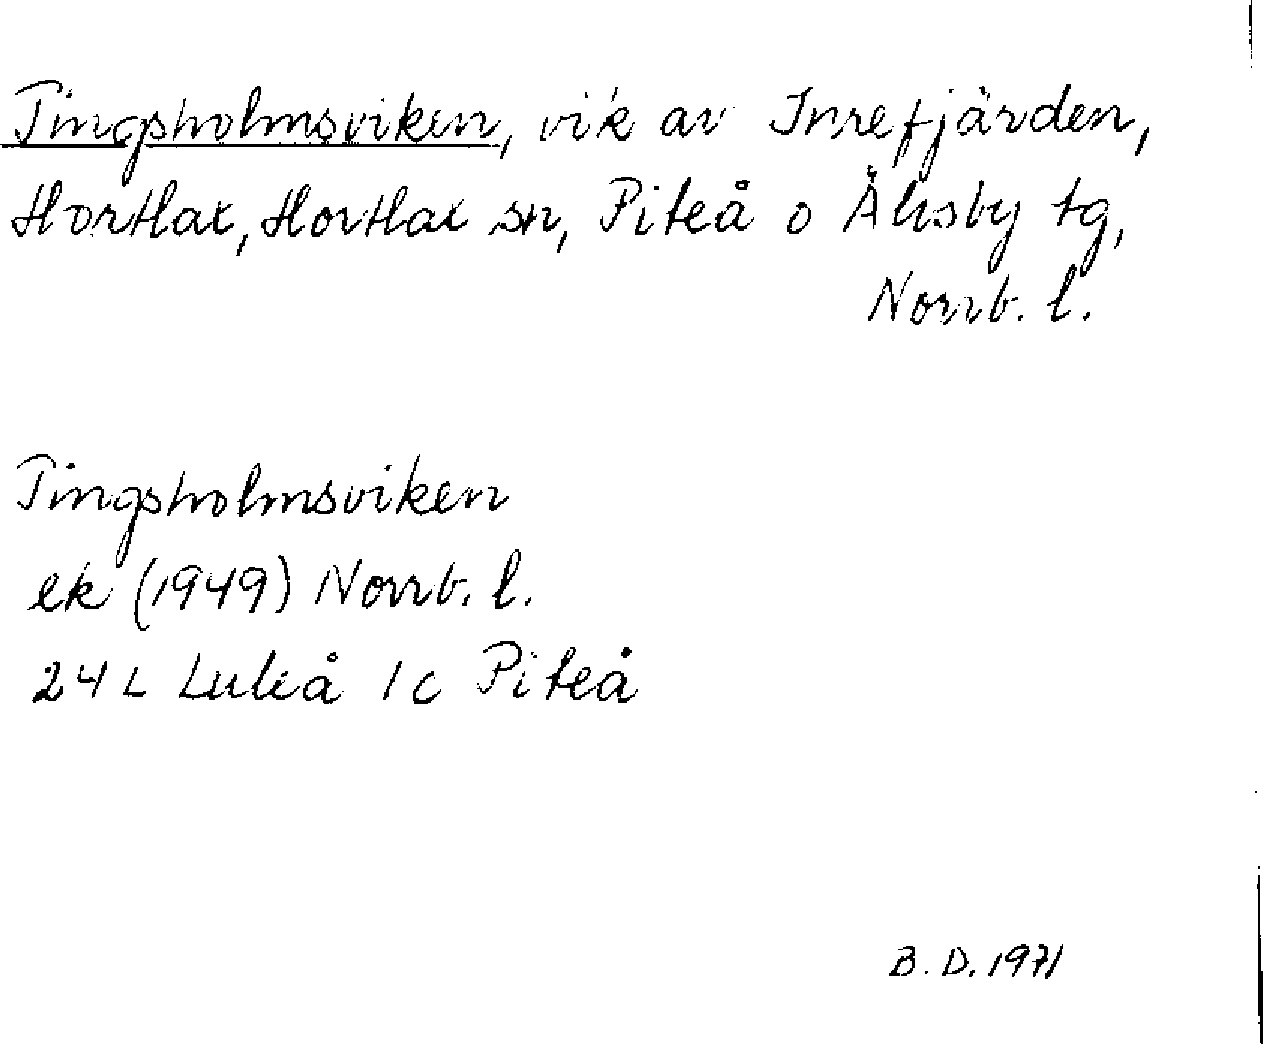 Tingsholmsviken, vik av Inrefjärden,
Hortlax, Hortlax sn, Piteå o Älvsby tg,
Norrb. l.
Tingsholmsviken
ek (1949) Norrb. l.
24 L Luleå 1 c Piteå
B. D. 1971